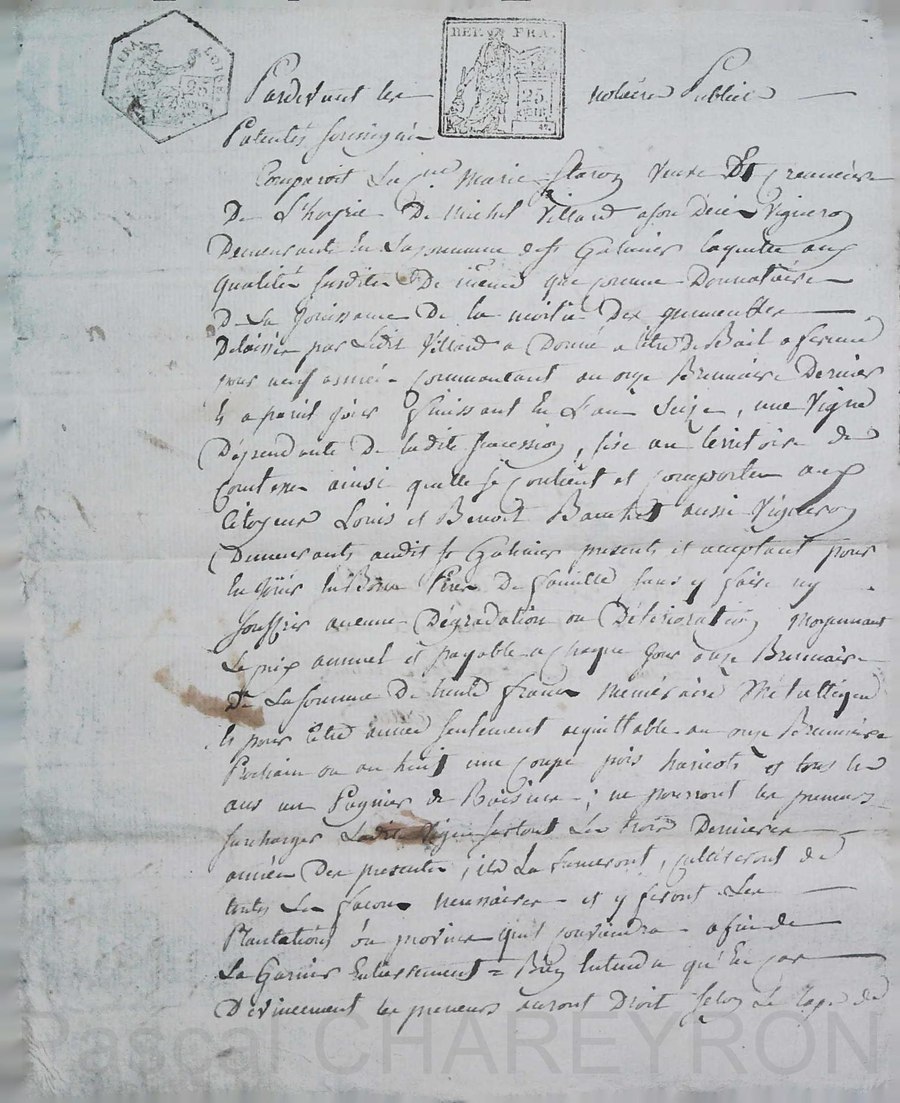 REP. FRA.
25
Pardevant les notaires Publics
Patentés soussignés
Comparoit La Cne Marie veuve Et Creancière
De L'hoyrie De Michel Villard a son Décès Vigneron
Demeurant En La commune de St Galmier laquelle aux
qualités susdites De même que comme Donnataire
De La Jouissance De la moitié Des
Delaissés par Ledit Villard a Donné a titre De Bail a ferme
pour neuf années commencant au onze Brumaire Dernier
Et a pareil jour finissant En L'an Seize, une Vigne
Dépendante De ladite succession, sise au territoire de
ainsi quelle se Contient et comporte aux
Citoyens Louis et Benoit aussi Vignerons
Demeurants audit St Galmier presents et acceptant pour
En jouir En Bons Pères De famille sans y faire ny
souffrir aucune Dégradation ou Détérioration, moyennant
Le prix annuel et payable a chaque jour onze Brumaire
De La somme De trente francs numéraire Métallique
Et pour cette année seulement acquittable au onze Brumaire
Prochain ou au huit une coupe pois haricots et tous les
ans un Pagnier de Raisins; ne pourront les preneurs
surcharger Ladite Vigne surtout Les trois Dernières
années Des presentes; ils La fumeront, cultiveront de
toutes Les façons necessaires et y feront Les
Plantations ou provins quil conviendra afin de
La Garnir Entierement = Bien Entendu qu'En cas
D'Evincement les preneurs auront Droit selon Le de
Pascal CHAREYRON